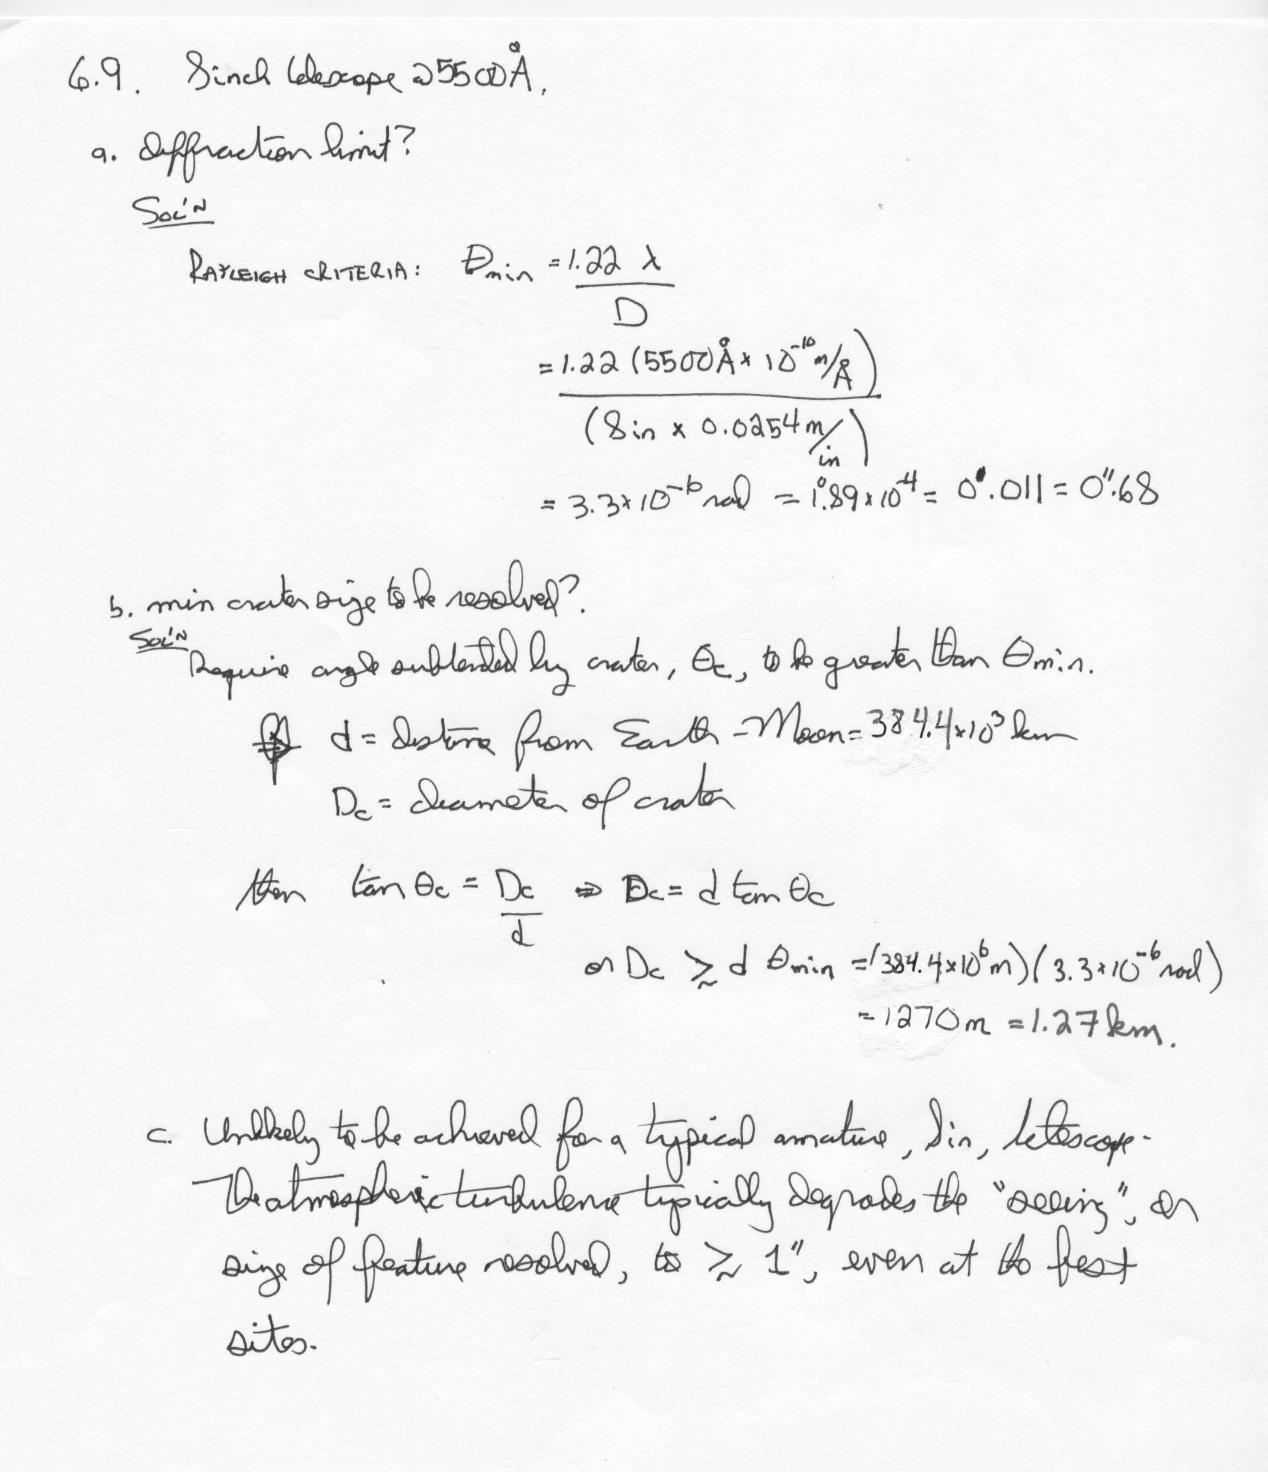 6.9. 8inch telescope @ 5500Å.
a. diffraction limit?
SOL'N
RAYLEIGH CRITERIA: θmin = 1.22 λ
D
= 1.22 (5500Å × 10⁻¹⁰ m/Å)
(8in × 0.0254 m/in)
= 3.3×10⁻⁶ rad = 1°.89×10⁻⁴ = 0'.011 = 0".68
b. min crater size to be resolved?
SOL'N
Require angle subtended by crater, θc, to be greater than θmin.
If d = distance from Earth - Moon = 384.4×10³ km
Dc = diameter of crater
then tan θc = Dc ⇒ Dc = d tan θc
d
or Dc ≳ d θmin = (384.4×10⁶ m)(3.3×10⁻⁶ rad)
= 1270m = 1.27 km.
c. Unlikely to be achieved for a typical amature, 8in, telescope.
The atmospheric turbulence typically degrades the "seeing", or
size of feature resolved, to ≳ 1", even at the best
sites.